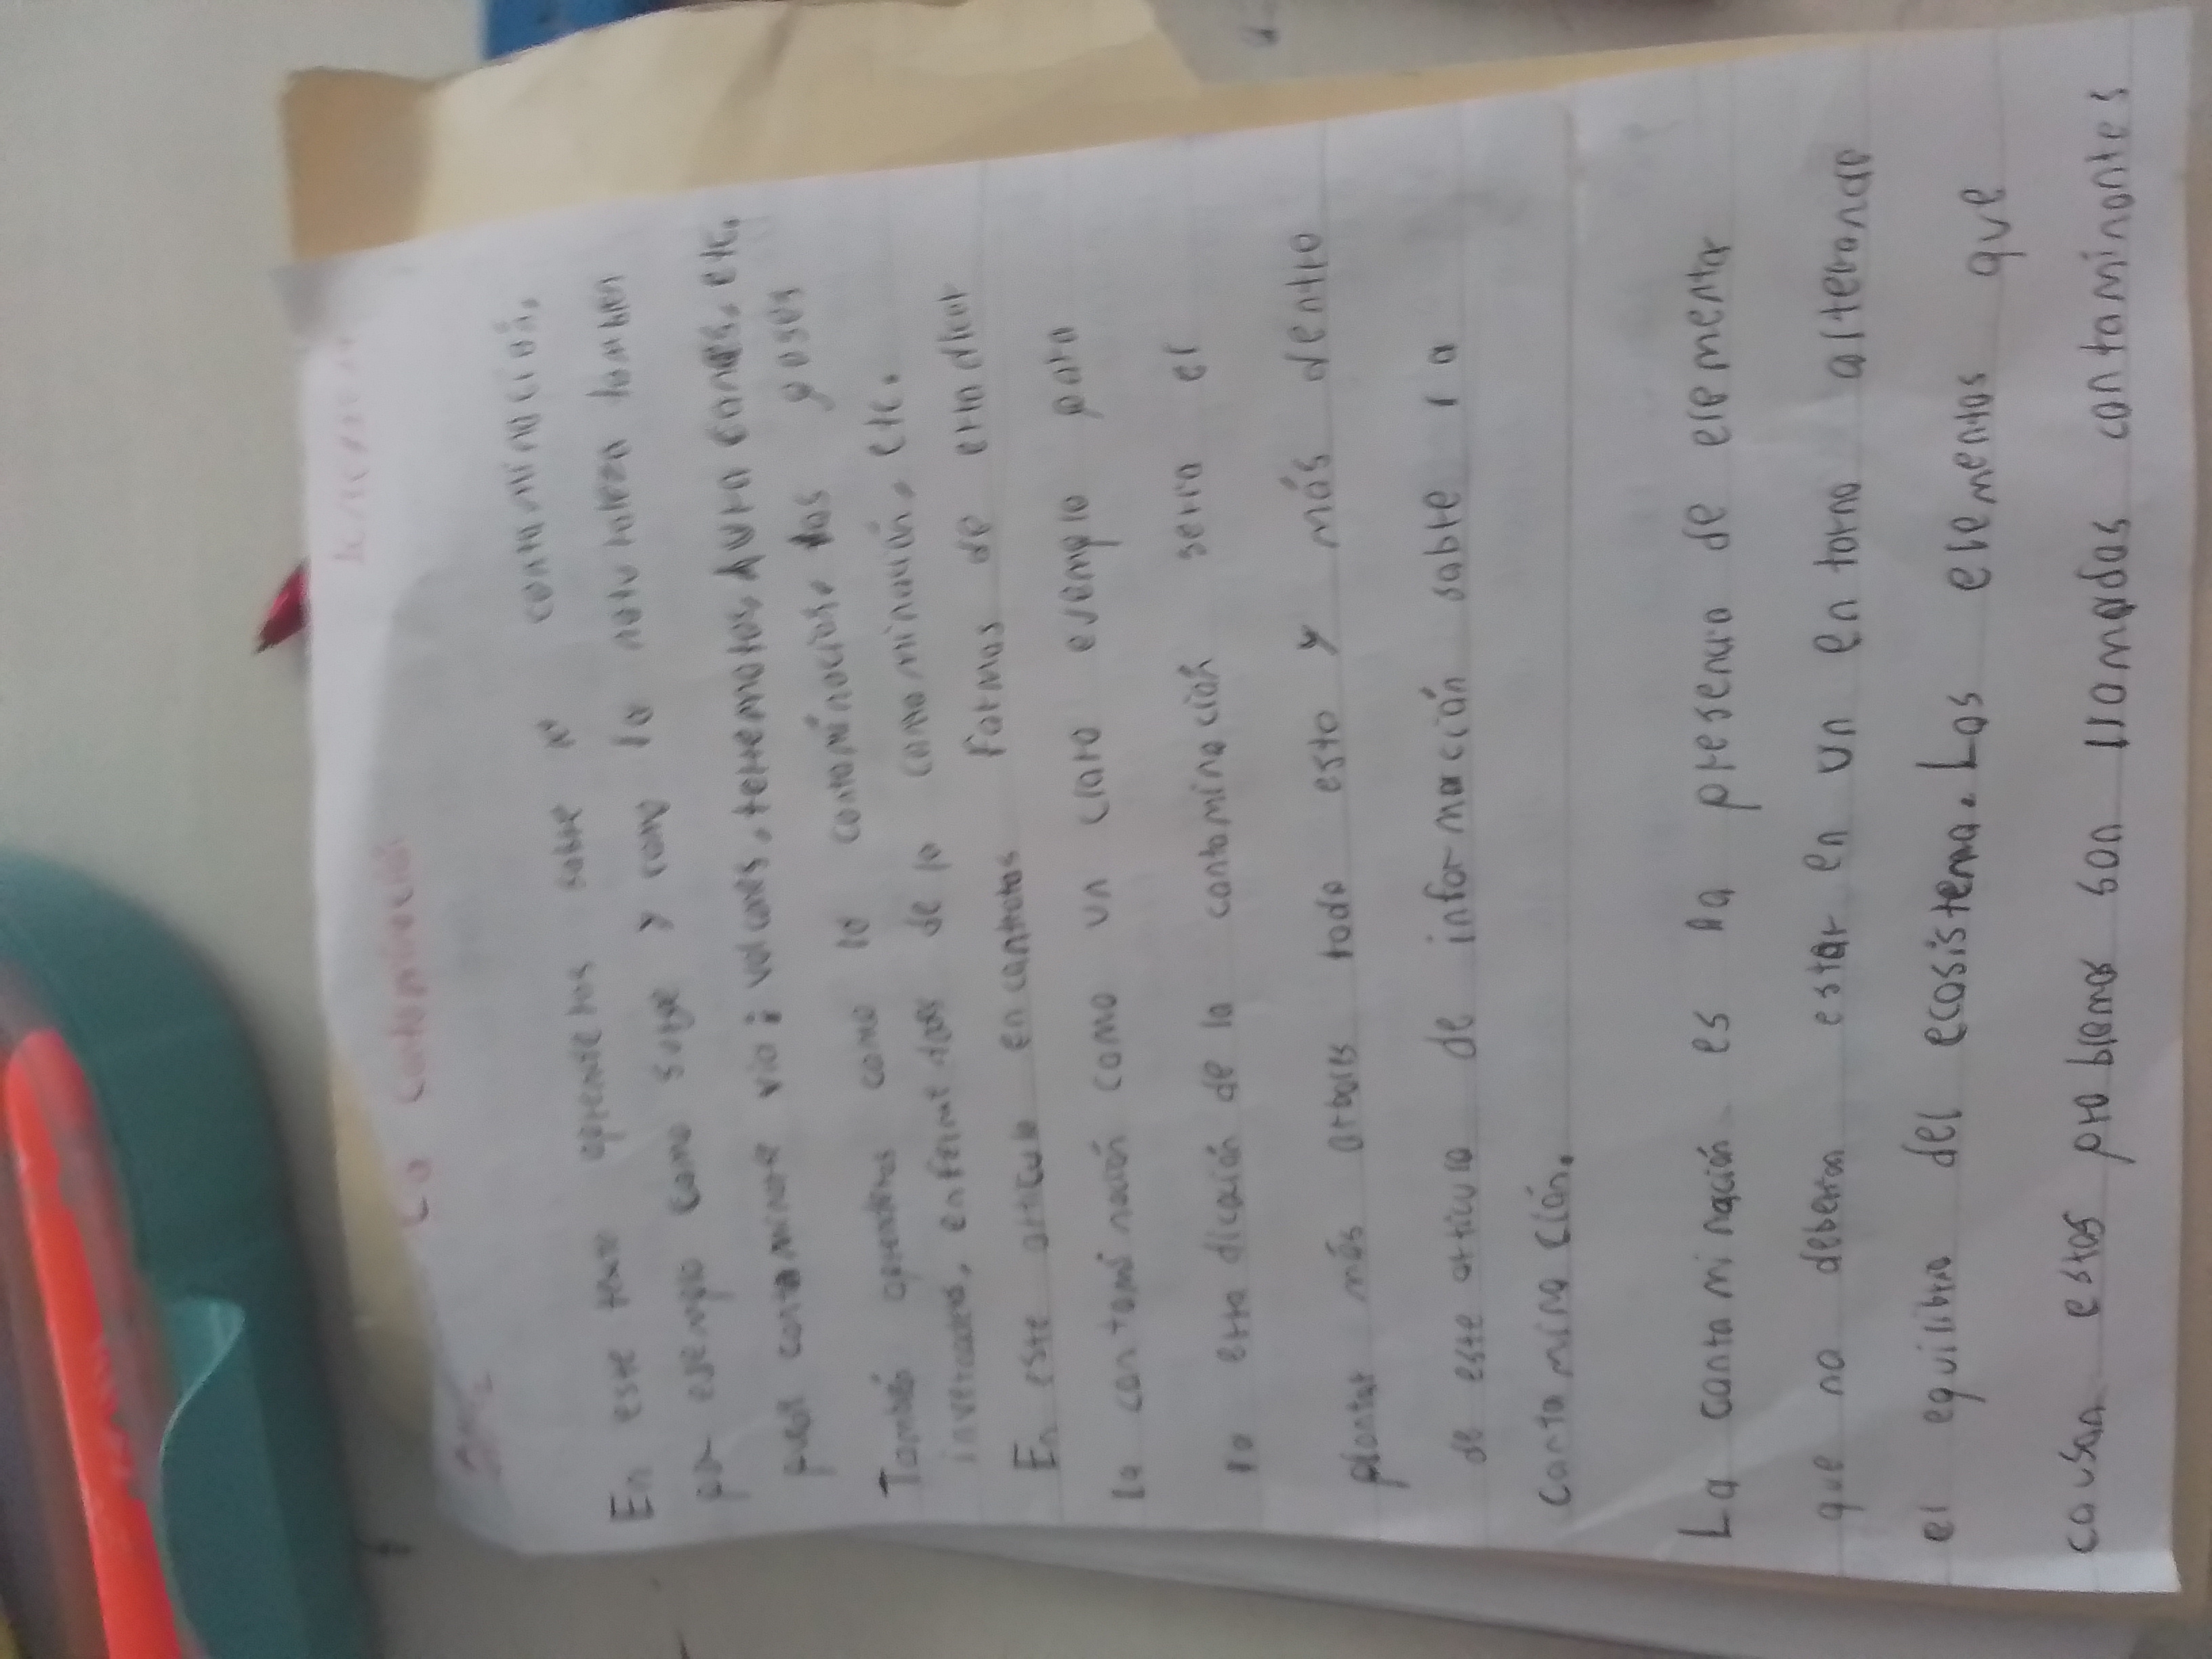 La Contaminación
En este texto aprenderas sobre la contaminación,
por ejemplo como surge y como la naturaleza tambien
puede contaminar via: volcanes, terremotos, huracanes, etc.
También aprenderas como la contaminación, los gases
invernadero, enfermedades de la contaminación, etc.
En este articulo encontrras formas de erradicar
la contaminación como un claro ejemplo para
la erradicación de la contaminación seria el
plantar más arboles todo esto y más dentro
de este articulo de información sobre la
contaminación.
La contaminación es la presencia de elementar
que no deberian estar en un entorno alterando
el equilibrio del ecosistema. Los elementos que
causan estos problemas son llamados contaminantes